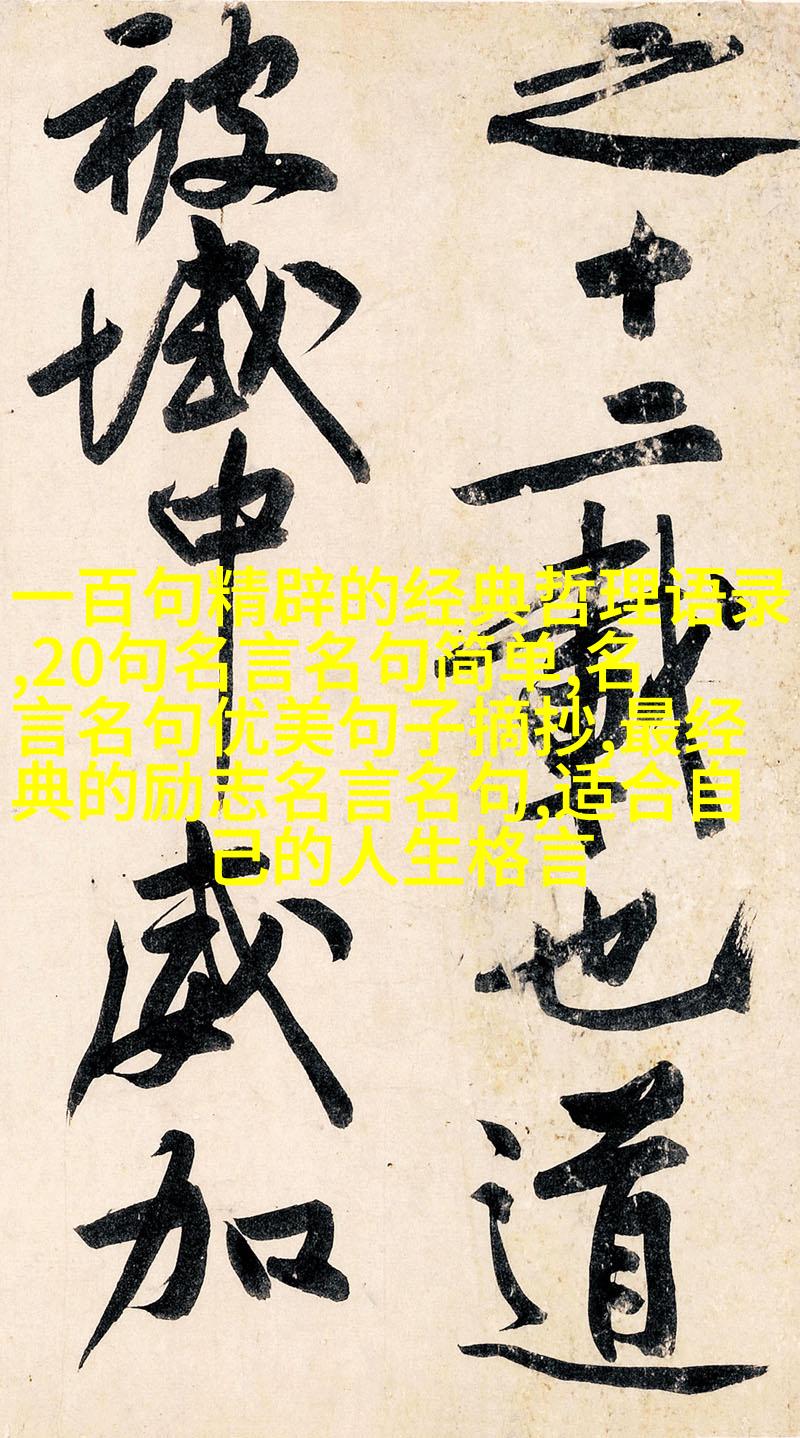 之十二載也道
被域中威加
一百句精辟的经典哲理语录
,20句名言名句简单,名
言名句优美句子摘抄,最经
典的励志名言名句,适合自
己的人生格言